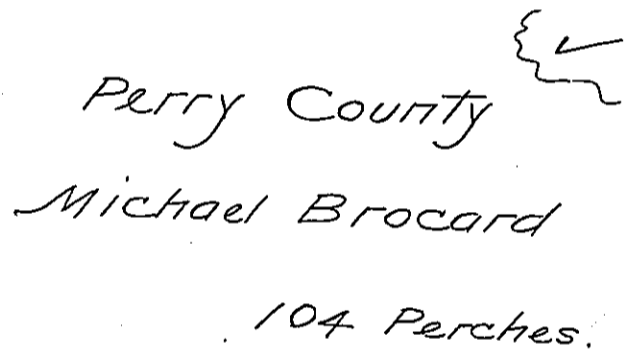 Perry County
Michael Brocard
104 Perches.